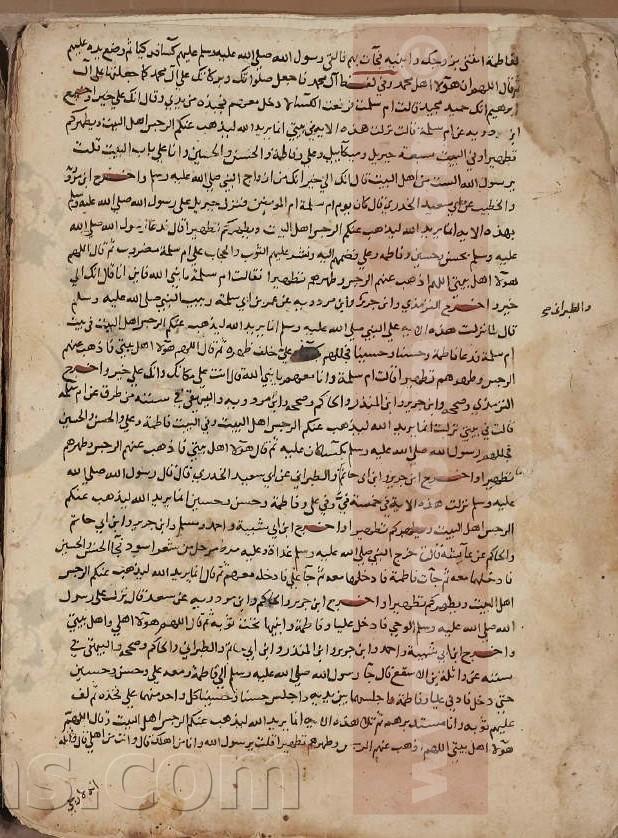 لفاطمة ائتني بزوجك وابنيه فجآت بهم فالقى رسول الله صلى الله عليه وسلم عليهم كسآ فدكيا ثم وضع يده عليهم
ثم قال اللهم ان هولا اهل محمد وفى لفظ آل محمد فاجعل صلواتك وبركاتك على آل محمد كما جعلتها على آل
ابرهيم انك حميد مجيد قالت ام سلمة فرفعت الكسآ لادخل معهم فجذبه من يدي وقال انك على خير واخرج
ابن مردويه عن ام سلمة قالت نزلت هذه الاية في بيتي انما يريد الله ليذهب عنكم الرجس اهل البيت ويطهركم
تطهيرا وفي البيت سبعة جبريل وميكاييل وعلي وفاطمة والحسن والحسين وانا على باب البيت قلت
يرسول الله الست من اهل البيت قال انك الى خير انك من ازواج النبي صلى الله عليه وسلم واخرج ابن مردويه
والخطيب عن ابي سعيد الخدري قال كان يوم ام سلمة ام المومنين فنزل جبريل على رسول الله صلى الله عليه وسلم
بهذه الاية انما يريد الله ليذهب عنكم الرجس اهل البيت ويطهركم تطهيرا قال فدعا رسول الله صلى الله
عليه وسلم بحسن وحسين وفاطمة وعلي فضمهم اليه ونشر عليهم الثوب والحجاب على ام سلمة مضروب ثم قال اللهم
هولا اهل بيتي اللهم اذهب عنهم الرجس وطهرهم تطهيرا فقالت ام سلمة فانا معهم يا نبي الله قال انك الى
خير واخرج الترمذي وابن جرير وابن مردويه عن عمر بن ابي سلمة ربيب النبي صلى الله عليه وسلم
والطبراني
قال لما نزلت هذه الاية على النبي صلى الله عليه وسلم انما يريد الله ليذهب عنكم الرجس اهل البيت في بيت
ام سلمة فدعا فاطمة وحسنا وحسينا فجللهم وعلي خلف ظهره ثم قال اللهم هولا اهل بيتي فاذهب عنهم
الرجس وطهرهم تطهيرا قالت ام سلمة وانا معهم يا نبي الله قال انت على مكانك وانك على خير واخرج
الترمذي وصححه وابن جرير وابن المنذر والحاكم وصححه وابن مردويه والبيهقي في سننه من طرق عن ام سلمة
قالت في بيتي نزلت انما يريد الله ليذهب عنكم الرجس اهل البيت وفي البيت فاطمة وعلي والحسن والحسين
فجللهم رسول الله صلى الله عليه وسلم بكسآ كان عليه ثم قال هولا اهل بيتي فاذهب عنهم الرجس وطهرهم
تطهيرا واخرج ابن جرير وابن ابي حاتم والطبراني عن ابي سعيد الخدري قال قال رسول الله صلى الله
عليه وسلم نزلت هذه الاية في خمسة في وفي علي وفاطمة وحسن وحسين انما يريد الله ليذهب عنكم
الرجس اهل البيت ويطهركم تطهيرا واخرج ابن ابي شيبة واحمد ومسلم وابن جرير وابن ابي حاتم
والحاكم عن عايشة قالت خرج النبي صلى الله عليه وسلم غداة وعليه مرط مرجل من شعر اسود فجآ الحسن والحسين
فادخلهما معه ثم جآت فاطمة فادخلها معه ثم جآ علي فادخله معهم ثم قال انما يريد الله ليذهب عنكم الرجس
اهل البيت ويطهركم تطهيرا واخرج ابن جرير والحاكم وابن مردويه عن سعد قال نزلت على رسول
الله صلى الله عليه وسلم الوحي فادخل عليا وفاطمة وابنيها تحت ثوبه ثم قال اللهم هولا اهلي واهل بيتي
واخرج ابن ابي شيبة واحمد وابن جرير وابن المنذر وابن ابي حاتم والطبراني والحاكم وصححه والبيهقي في
سننه عن واثلة بن الاسقع قال جآ رسول الله صلى الله عليه وسلم الى فاطمة ومعه علي وحسن وحسين
حتى دخل فادنى عليا وفاطمة فاجلسهما بين يديه واجلس حسنا وحسينا كل واحد منهما على فخذه ثم لف
عليهم ثوبه وانا مستدبرهم ثم تلى هذه الاية انما يريد الله ليذهب عنكم الرجس اهل البيت وقال اللهم
هولا اهل بيتي اللهم اذهب عنهم الرجس وطهرهم تطهيرا قلت يرسول الله وانا من اهلك قال وانت من اهلي قال واثلة
ns.com